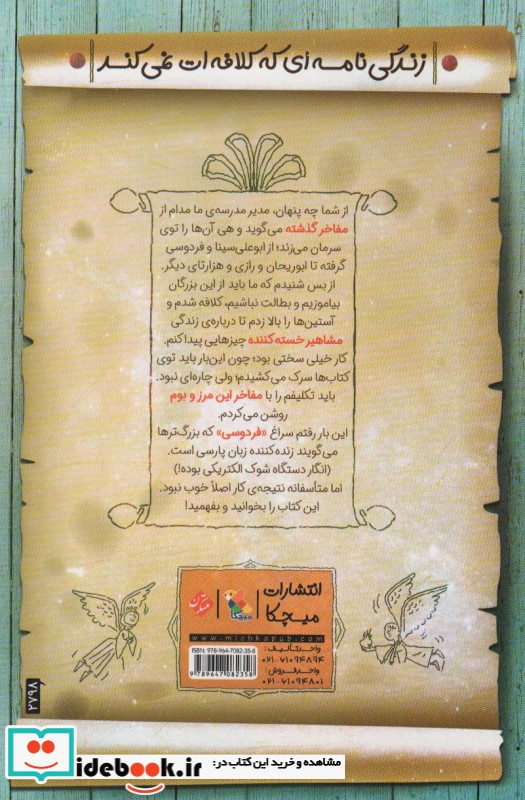 زندگی نامه ای که کلافه ات نمی کند
از شما چه پنهان، مدیر مدرسه‌ی ما مدام از
مفاخر گذشته می‌گوید و هی آن‌ها را توی
سرمان می‌زند؛ از ابوعلی‌سینا و فردوسی
گرفته تا ابوریحان و رازی و هزارتای دیگر.
از بس شنیدم که ما باید از این بزرگان
بیاموزیم و بطالت نباشیم، کلافه شدم و
آستین‌ها را بالا زدم تا درباره‌ی زندگی
مشاهیر خسته‌کننده چیزهایی پیدا کنم.
کار خیلی سختی بود؛ چون این‌بار باید توی
کتاب‌ها سرک می‌کشیدم؛ ولی چاره‌ای نبود.
باید تکلیفم را با مفاخر این مرز و بوم
روشن می‌کردم.
این بار رفتم سراغ «فردوسی» که بزرگ‌ترها
می‌گویند زنده‌کننده زبان پارسی است.
(انگار دستگاه شوک الکتریکی بوده!)
اما متأسفانه نتیجه‌ی کار اصلاً خوب نبود.
این کتاب را بخوانید و بفهمید!
انتشارات
میچکا
میچکا
www.michkapub.com
ISBN: 978-964-7082-35-8
9789647082358
واحد تألیف:
۰۲۱-۶۱۰۹۴۸۹۴
واحد فروش:
۰۲۱-۶۱۰۹۴۸۰۱
۲۷۹۸
idebook.ir
مشاهده و خرید این کتاب در: